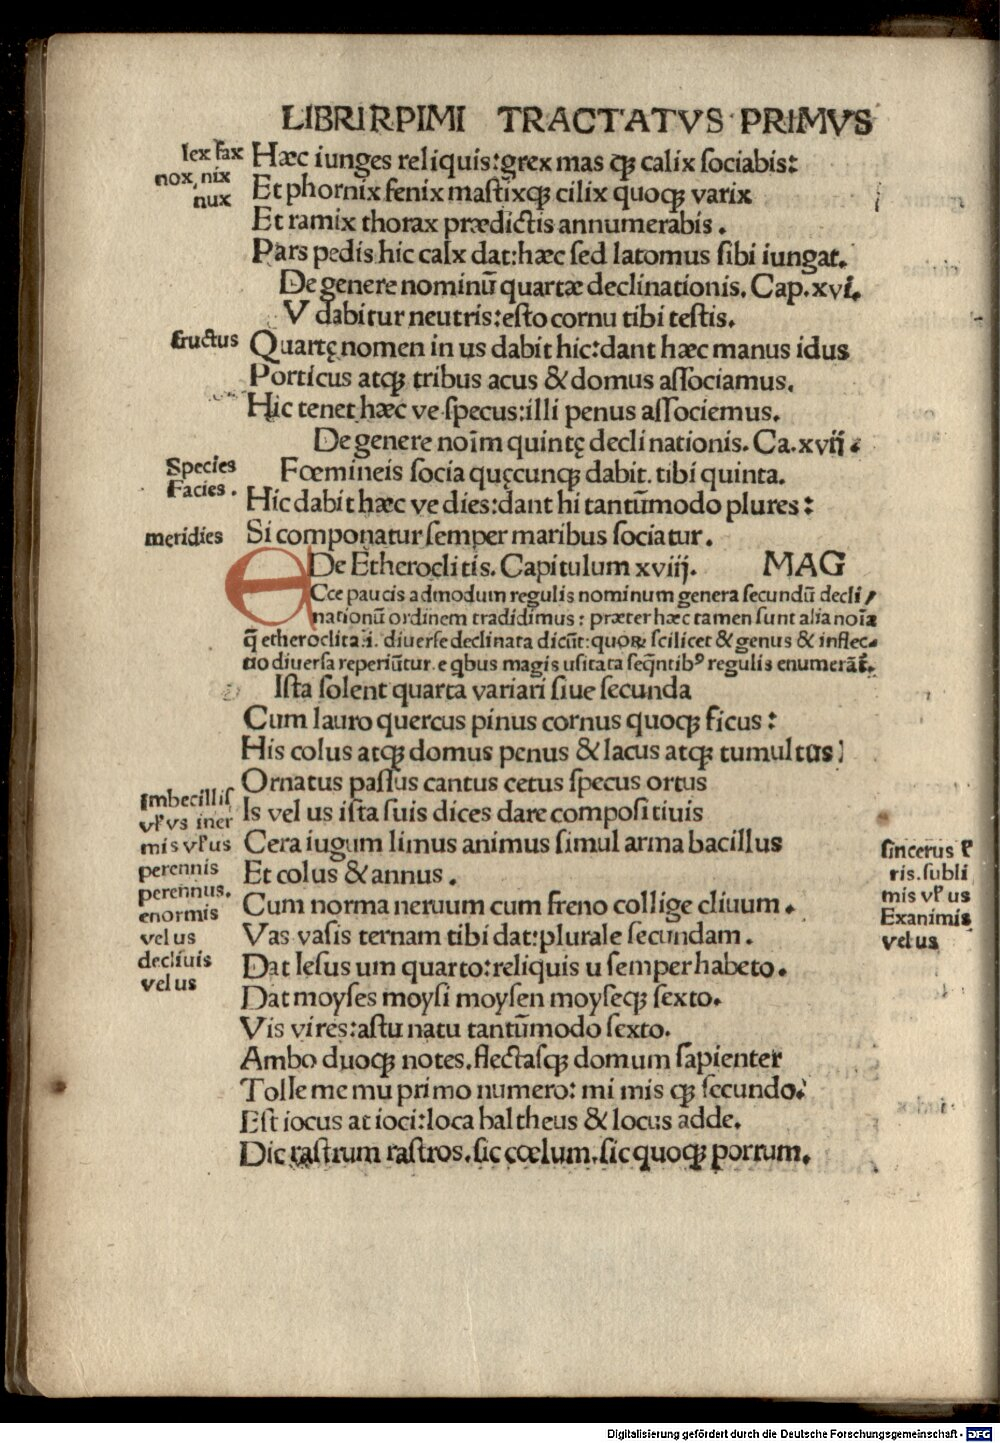 LIBRI RPIMI TRACTATVS PRIMVS
lex fax
nox nix
nux
Hæc iunges reliquis: grex mas qꝫ calix sociabis:
Et phornix fenix mastixqꝫ cilix quoqꝫ varix
Et ramix thorax prædictis annumerabis.
Pars pedis hic calx dat: hæc sed latomus sibi iungat.
De genere nominū quartæ declinationis. Cap. xvi.
V dabitur neutris: esto cornu tibi testis.
fructus
Quartę nomen in us dabit hic: dant hæc manus idus
Porticus atqꝫ tribus acus & domus associamus.
Hic tenet hæc ve specus: illi penus associemus.
De genere noīm quintę declinationis. Ca. xvij.
Species
Facies.
Fœmineis socia quęcunqꝫ dabit. tibi quinta.
Hic dabit hæc ve dies: dant hi tantūmodo plures:
meridies
Si componatur semper maribus sociatur.
De Etheroclitis. Capitulum xviij. MAG
ECce paucis admodum regulis nominum genera secundū decli/
nationū ordinem tradidimus: præter hæc tamen sunt alia noīa
q̄ etheroclita .i. diuerse declinata dicūt: quoꝝ scilicet & genus & inflec-
tio diuersa reperiūtur. e qbus magis usitata seq̄ntibꝰ regulis enumerāt.
Ista solent quarta variari siue secunda
Cum lauro quercus pinus cornus quoqꝫ ficus:
His colus atqꝫ domus penus & lacus atqꝫ tumultus:
Ornatus passus cantus cetus specus ortus
Is vel us ista suis dices dare compositiuis
Cera iugum limus animus simul arma bacillus
Et colus & annus.
Cum norma neruum cum freno collige cliuum.
Vas vasis ternam tibi dat: plurale secundam.
Dat Iesus um quarto: reliquis u semper habeto.
Dat moyses moysi moysen moyseqꝫ sexto.
Vis vires: astu natu tantūmodo sexto.
Ambo duoqꝫ notes. flectasqꝫ domum sapienter
Tolle me mu primo numero: mi mis qꝫ secundo:
Est iocus at ioci: loca baltheus & locus adde.
Dic rastrum rastros. sic cœlum. sic quoqꝫ porrum.
Imbecillis
vl' vs iner
mis vl' us
perennis
perennus.
enormis
vel us
decliuis
vel us
sincerus l'
ris. subli
mis vl' us
Exanimis
vel us
Digitalisierung gefördert durch die Deutsche Forschungsgemeinschaft - DFG